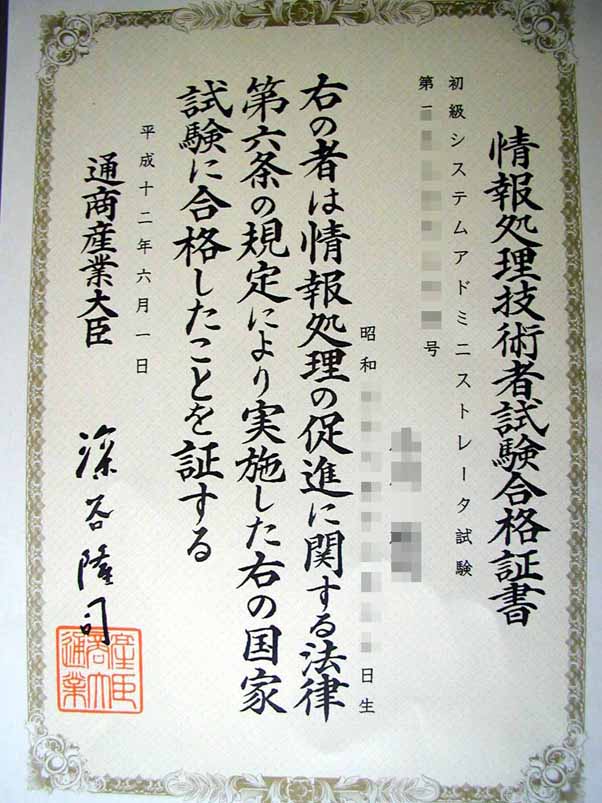 情報処理技術者試験合格証書
初級システムアドミニストレータ試験
第 号
昭和 日生
右の者は情報処理の促進に関する法律
第六条の規定により実施した右の国家
試験に合格したことを証する
平成十二年六月一日
通商産業大臣
深谷隆司
通商産業大臣